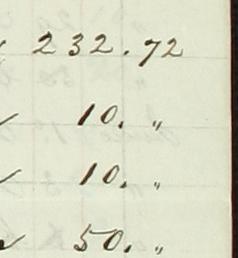 232.72
10. "
10. "
50. "